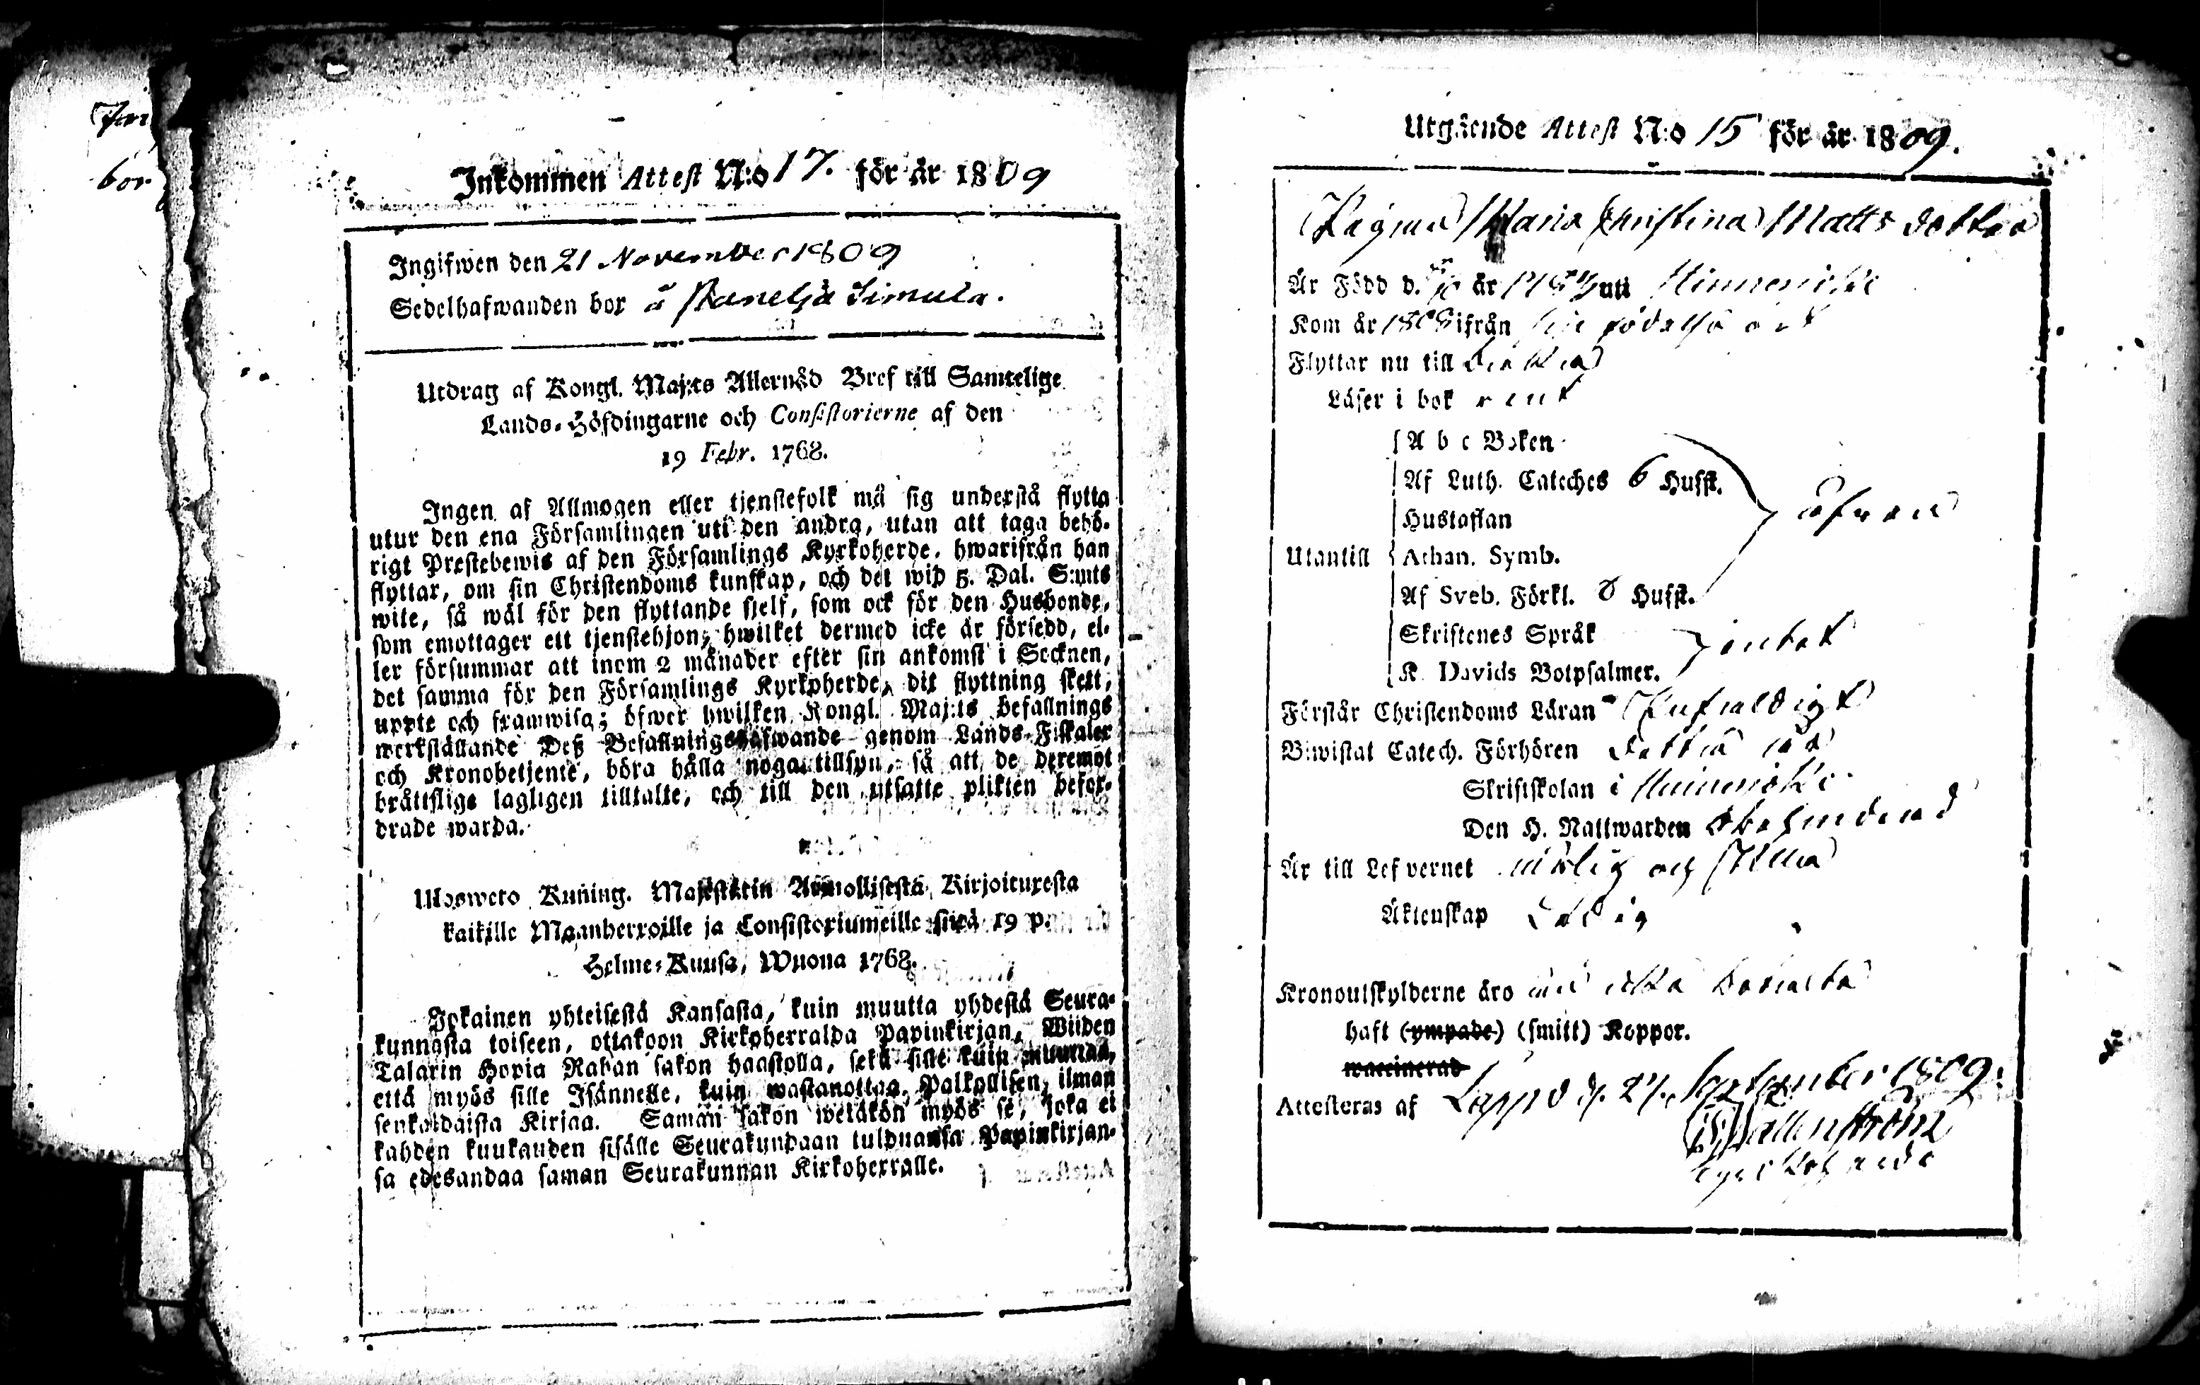 bor
Inkommen Attest N:o 17. för år 1809
Ingifwen den 21 November 1809
Sedelhafwanden bor å Simula.
Utdrag af Kongl. Maj:ts Allernåd Bref till Samtelige
Lands-Höfdingarne och Consistorierne af den
19 Febr. 1768.
Ingen af Allmogen eller tjenstefolk må sig understå flytta
utur den ena Församlingen uti den andra, utan att taga behö-
rigt Prestebewis af den Församlings Kyrkoherde, hwarifrån han
flyttar, om sin Christendoms kunskap, och det wid 5. Dal. S:mts
wite, så wäl för den flyttande sjelf, som ock för den Husbonde,
som emottager ett tjenstehjon, hwilket dermed icke är försedd, el-
ler försummar att inom 2 månader efter sin ankomst i Socknen,
det samma för den Församlings Kyrkoherde, dit flyttning skett,
uppte och framwisa; öfwer hwilken Kongl. Maj:ts befallnings
werkställande Deß Befallningshafwande genom Lands-Fiskaler
och Kronobetjente, böra hålla noga tillsyn, så att de deremot
bråttslige lagligen tilltalte, och till den utsatte plikten befor-
drade warda.
Ulosweto Kuning. Majestetin Armollisesta Kirjoituxesta
kaikille Maanherroille ja Consistoriumeille siitä 19 p.
Helme-Kuusa, Wuona 1768.
Jokainen yhteisestä Kansasta, kuin muutta yhdestä Seura-
kunnasta toiseen, ottakoon Kirkoherralda Papinkirjan, Wiiden
Talarin Hopia Rahan sakon haastolla, sekä sille kuin muuttaa,
että myös sille Isännelle, kuin wastanottaa Palkollisen, ilman
senkaldaista Kirjaa. Saman sakon wetäkön myös se, joka ei
kahden kuukauden sisälle Seurakundaan tulduansa Papinkirjan-
sa edesandaa saman Seurakunnan Kirkoherralle.
Utgående Attest N:o 15 för år 1809.
Pigan Maria Christina Matts dotter
Är Född d. år uti
Kom år 1808 ifrån födelse ort
Flyttar nu till
Läser i bok rent
A b c Boken
Af Luth. Cateches 6 Hufst.
Hustaflan
Utantill Athan. Symb.
Af Sveb. Förkl. 8 Hufst.
Skriftenes Språk
K. Davids Botpsalmer.
intet
Förstår Christendoms Läran Enfaldigt
Biwistat Catech. Förhören detta år
Skriftskolan i
Den H. Nattwarden
Är till Lefvernet ärlig och stilla
Äktenskap Ledig
Kronoutskylderne äro betalta
haft (ympade) (smitt) Koppor.
waccinerad
Attesteras af Lappo d. 27. September 1809.